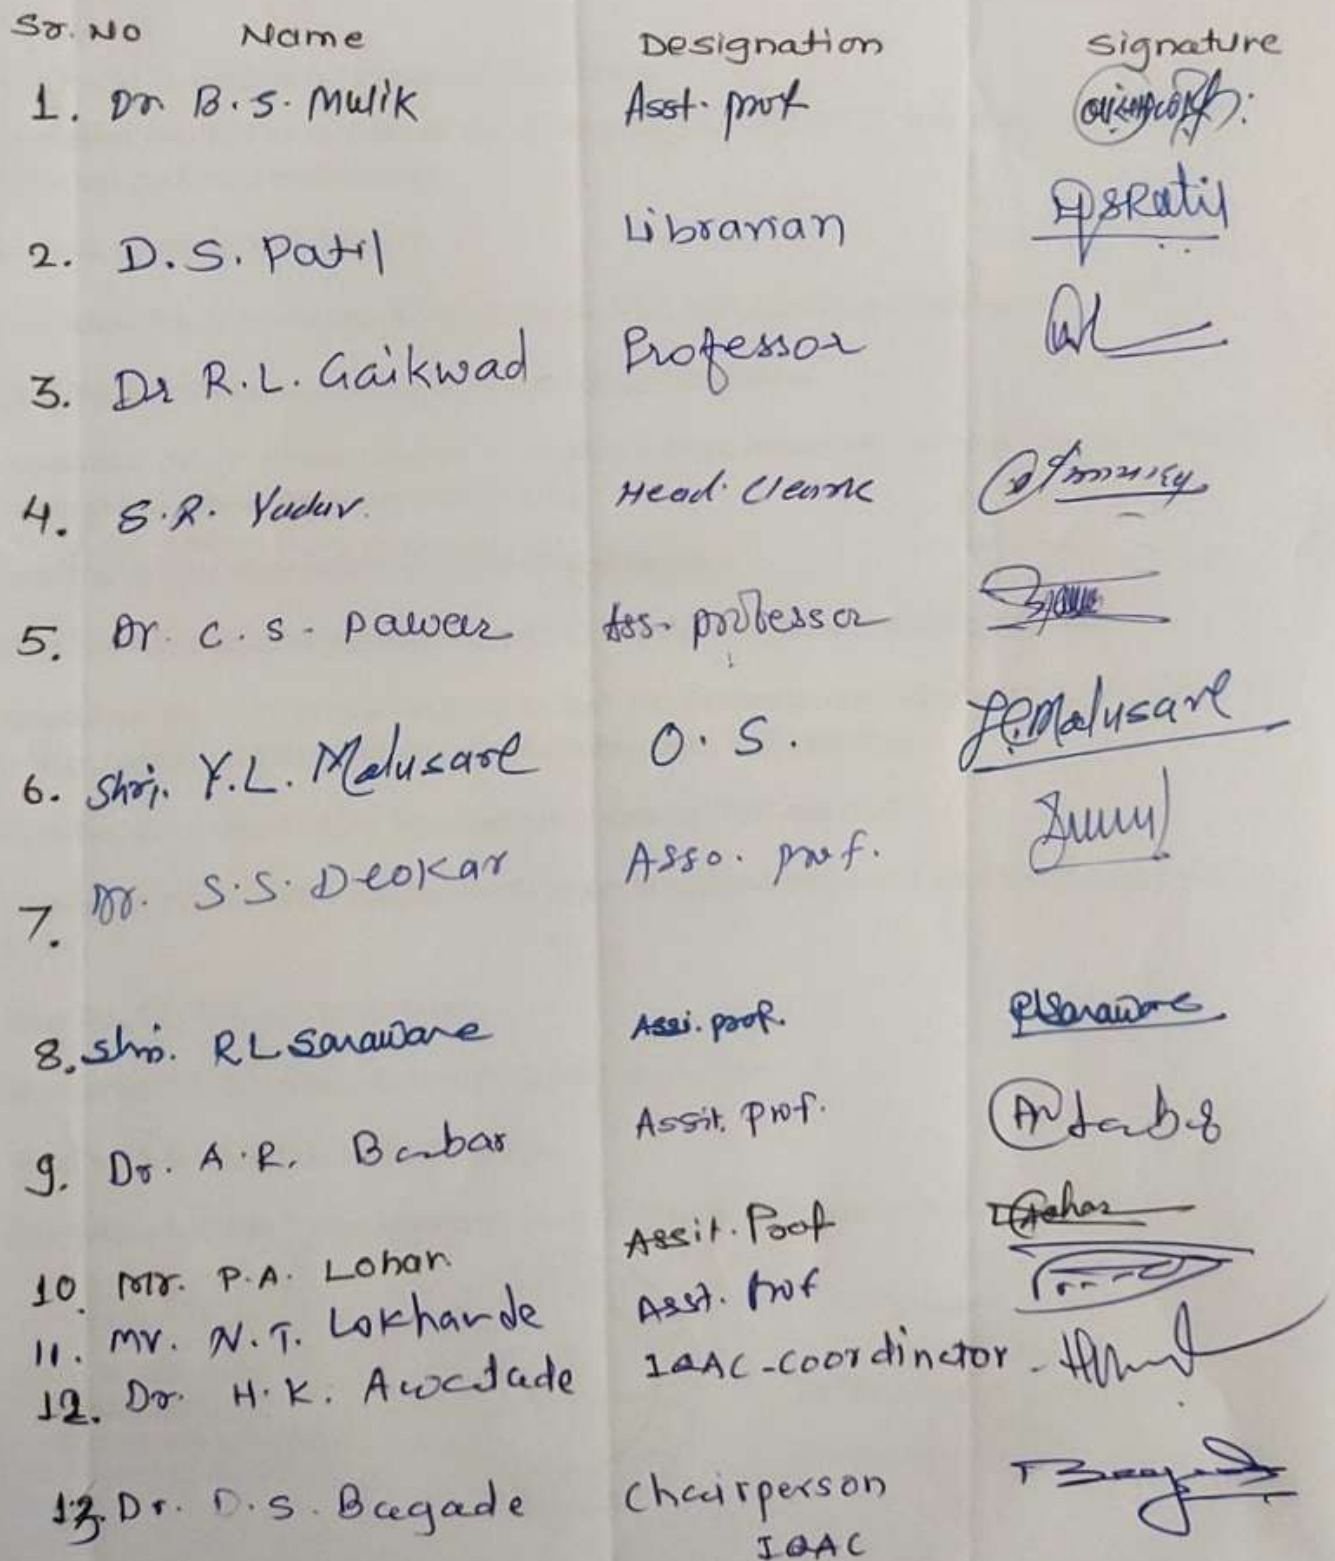 Sr. No Name Designation Signature
1. Dr B.S. Mulik Asst. prof
2. D.S. Patil Librarian DSPatil
3. Dr R.L. Gaikwad Professor
4. S.R. Yadav. Head. Clerk
5. Dr. C.S. Pawar Ass. professor
6. Shri. Y.L. Malusare O.S. Malusare
7. Dr. S.S. Deokar Asso. prof.
8. Shri. RL Sarawade Assi. prof.
9. Dr. A.R. Babar Assit. Prof.
10. Mr. P.A. Lohar Assit. Prof
11. Mr. N.T. Lokhande Asst. Prof
12. Dr. H.K. Awatade IQAC-coordinator
13. Dr. D.S. Bagade Chairperson
IQAC